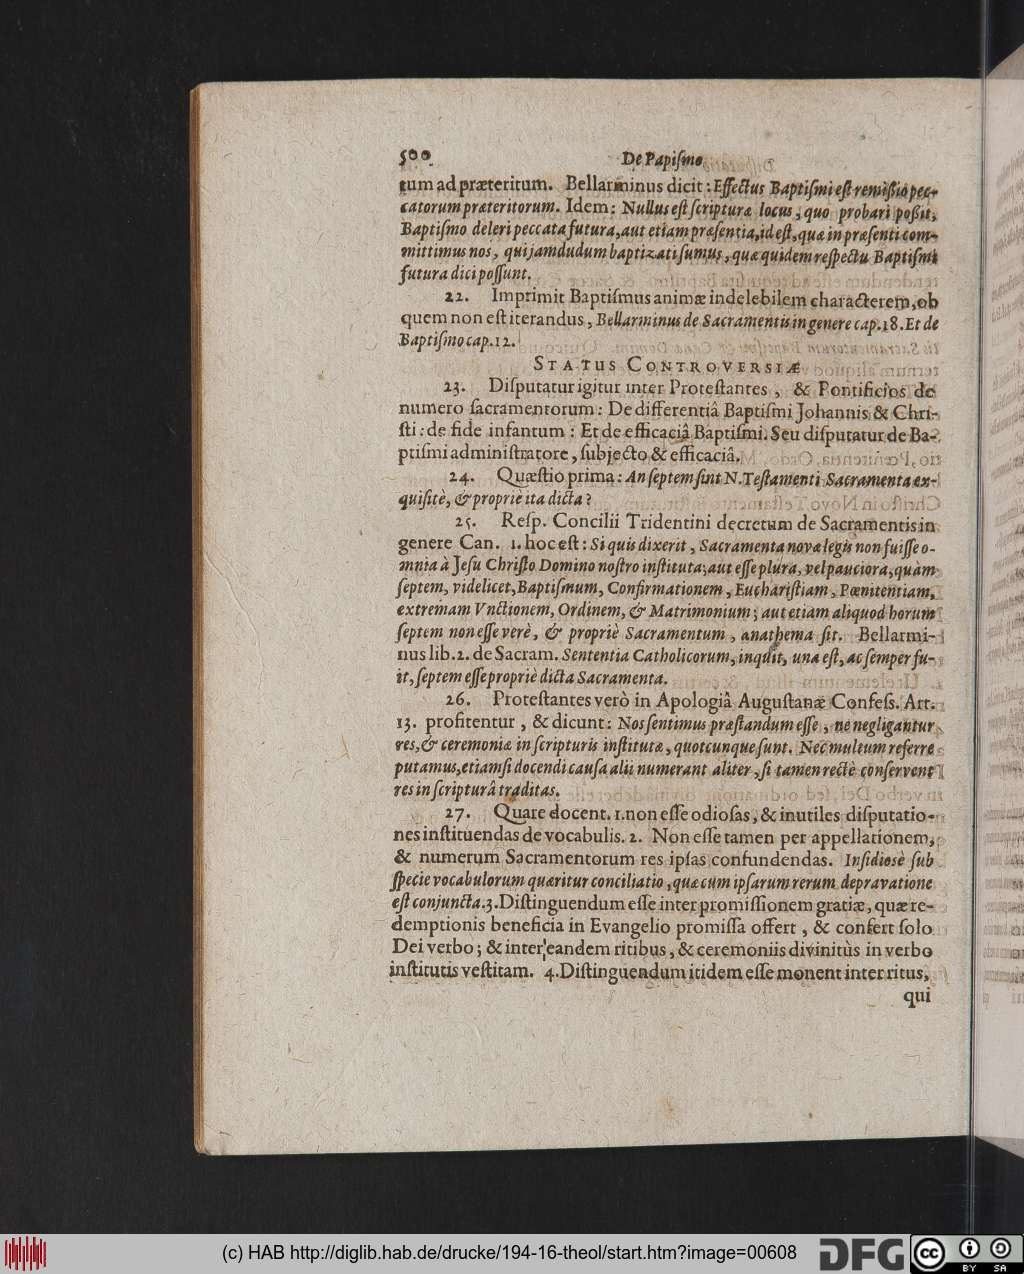 500 De Papiſmo
tum ad præteritum. Bellarminus dicit: Effectus Baptiſmi eſt remißio pec-
catorum præteritorum. Idem: Nullus eſt ſcripturæ locus, quo probari poßit,
Baptiſmo deleri peccata futura, aut etiam præſentia, id eſt, quæ in præſenti com-
mittimus nos, qui jamdudum baptizati ſumus, quæ quidem reſpectu Baptiſmi
futura dici poſſunt.
22. Imprimit Baptiſmus animæ indelebilem characterem, ob
quem non eſt iterandus, Bellarminus de Sacramentis in genere cap. 18. Et de
Baptiſmo cap. 12.
STATUS CONTROVERSIÆ
23. Diſputatur igitur inter Proteſtantes, & Pontificios de
numero ſacramentorum: De differentiâ Baptiſmi Johannis & Chri-
ſti: de fide infantum: Et de efficaciâ Baptiſmi. Seu diſputatur de Ba-
ptiſmi adminiſtratore, ſubjecto & efficaciâ.
24. Quæſtio prima: An ſeptem ſint N. Teſtamenti Sacramenta ex-
quiſitè, & propriè ita dicta?
25. Reſp. Concilii Tridentini decretum de Sacramentis in
genere Can. 1. hoc eſt: Si quis dixerit, Sacramenta novæ legis non fuiſſe o-
mnia à Jeſu Chriſto Domino noſtro inſtituta; aut eſſe plura, vel pauciora, quàm
ſeptem, videlicet, Baptiſmum, Confirmationem, Euchariſtiam, Pœnitentiam,
extremam Vnctionem, Ordinem, & Matrimonium; aut etiam aliquod horum
ſeptem non eſſe verè, & propriè Sacramentum, anathema ſit. Bellarmi-
nus lib. 2. de Sacram. Sententia Catholicorum, inquit, una eſt, ac ſemper fu-
it, ſeptem eſſe propriè dicta Sacramenta.
26. Proteſtantes verò in Apologiâ Auguſtanæ Confeſs. Art.
13. profitentur, & dicunt: Nos ſentimus præſtandum eſſe, ne negligantur
res, & ceremoniæ in ſcripturis inſtitutæ, quotcunque ſunt. Nec multum referre
putamus, etiamſi docendi cauſa alii numerant aliter, ſi tamen rectè conſervent
res in ſcripturâ traditas.
27. Quare docent. 1. non eſſe odioſas, & inutiles diſputatio-
nes inſtituendas de vocabulis. 2. Non eſſe tamen per appellationem,
& numerum Sacramentorum res ipſas confundendas. Inſidiosè ſub
ſpecie vocabulorum quæritur conciliatio, quæ cum ipſarum rerum depravatione
eſt conjuncta. 3. Diſtinguendum eſſe inter promiſſionem gratiæ, quæ re-
demptionis beneficia in Evangelio promiſſa offert, & confert ſolo
Dei verbo; & inter eandem ritibus, & ceremoniis divinitùs in verbo
inſtitutis veſtitam. 4. Diſtinguendum itidem eſſe monent inter ritus,
qui
(c) HAB http://diglib.hab.de/drucke/194-16-theol/start.htm?image=00608
DFG
cc BY SA